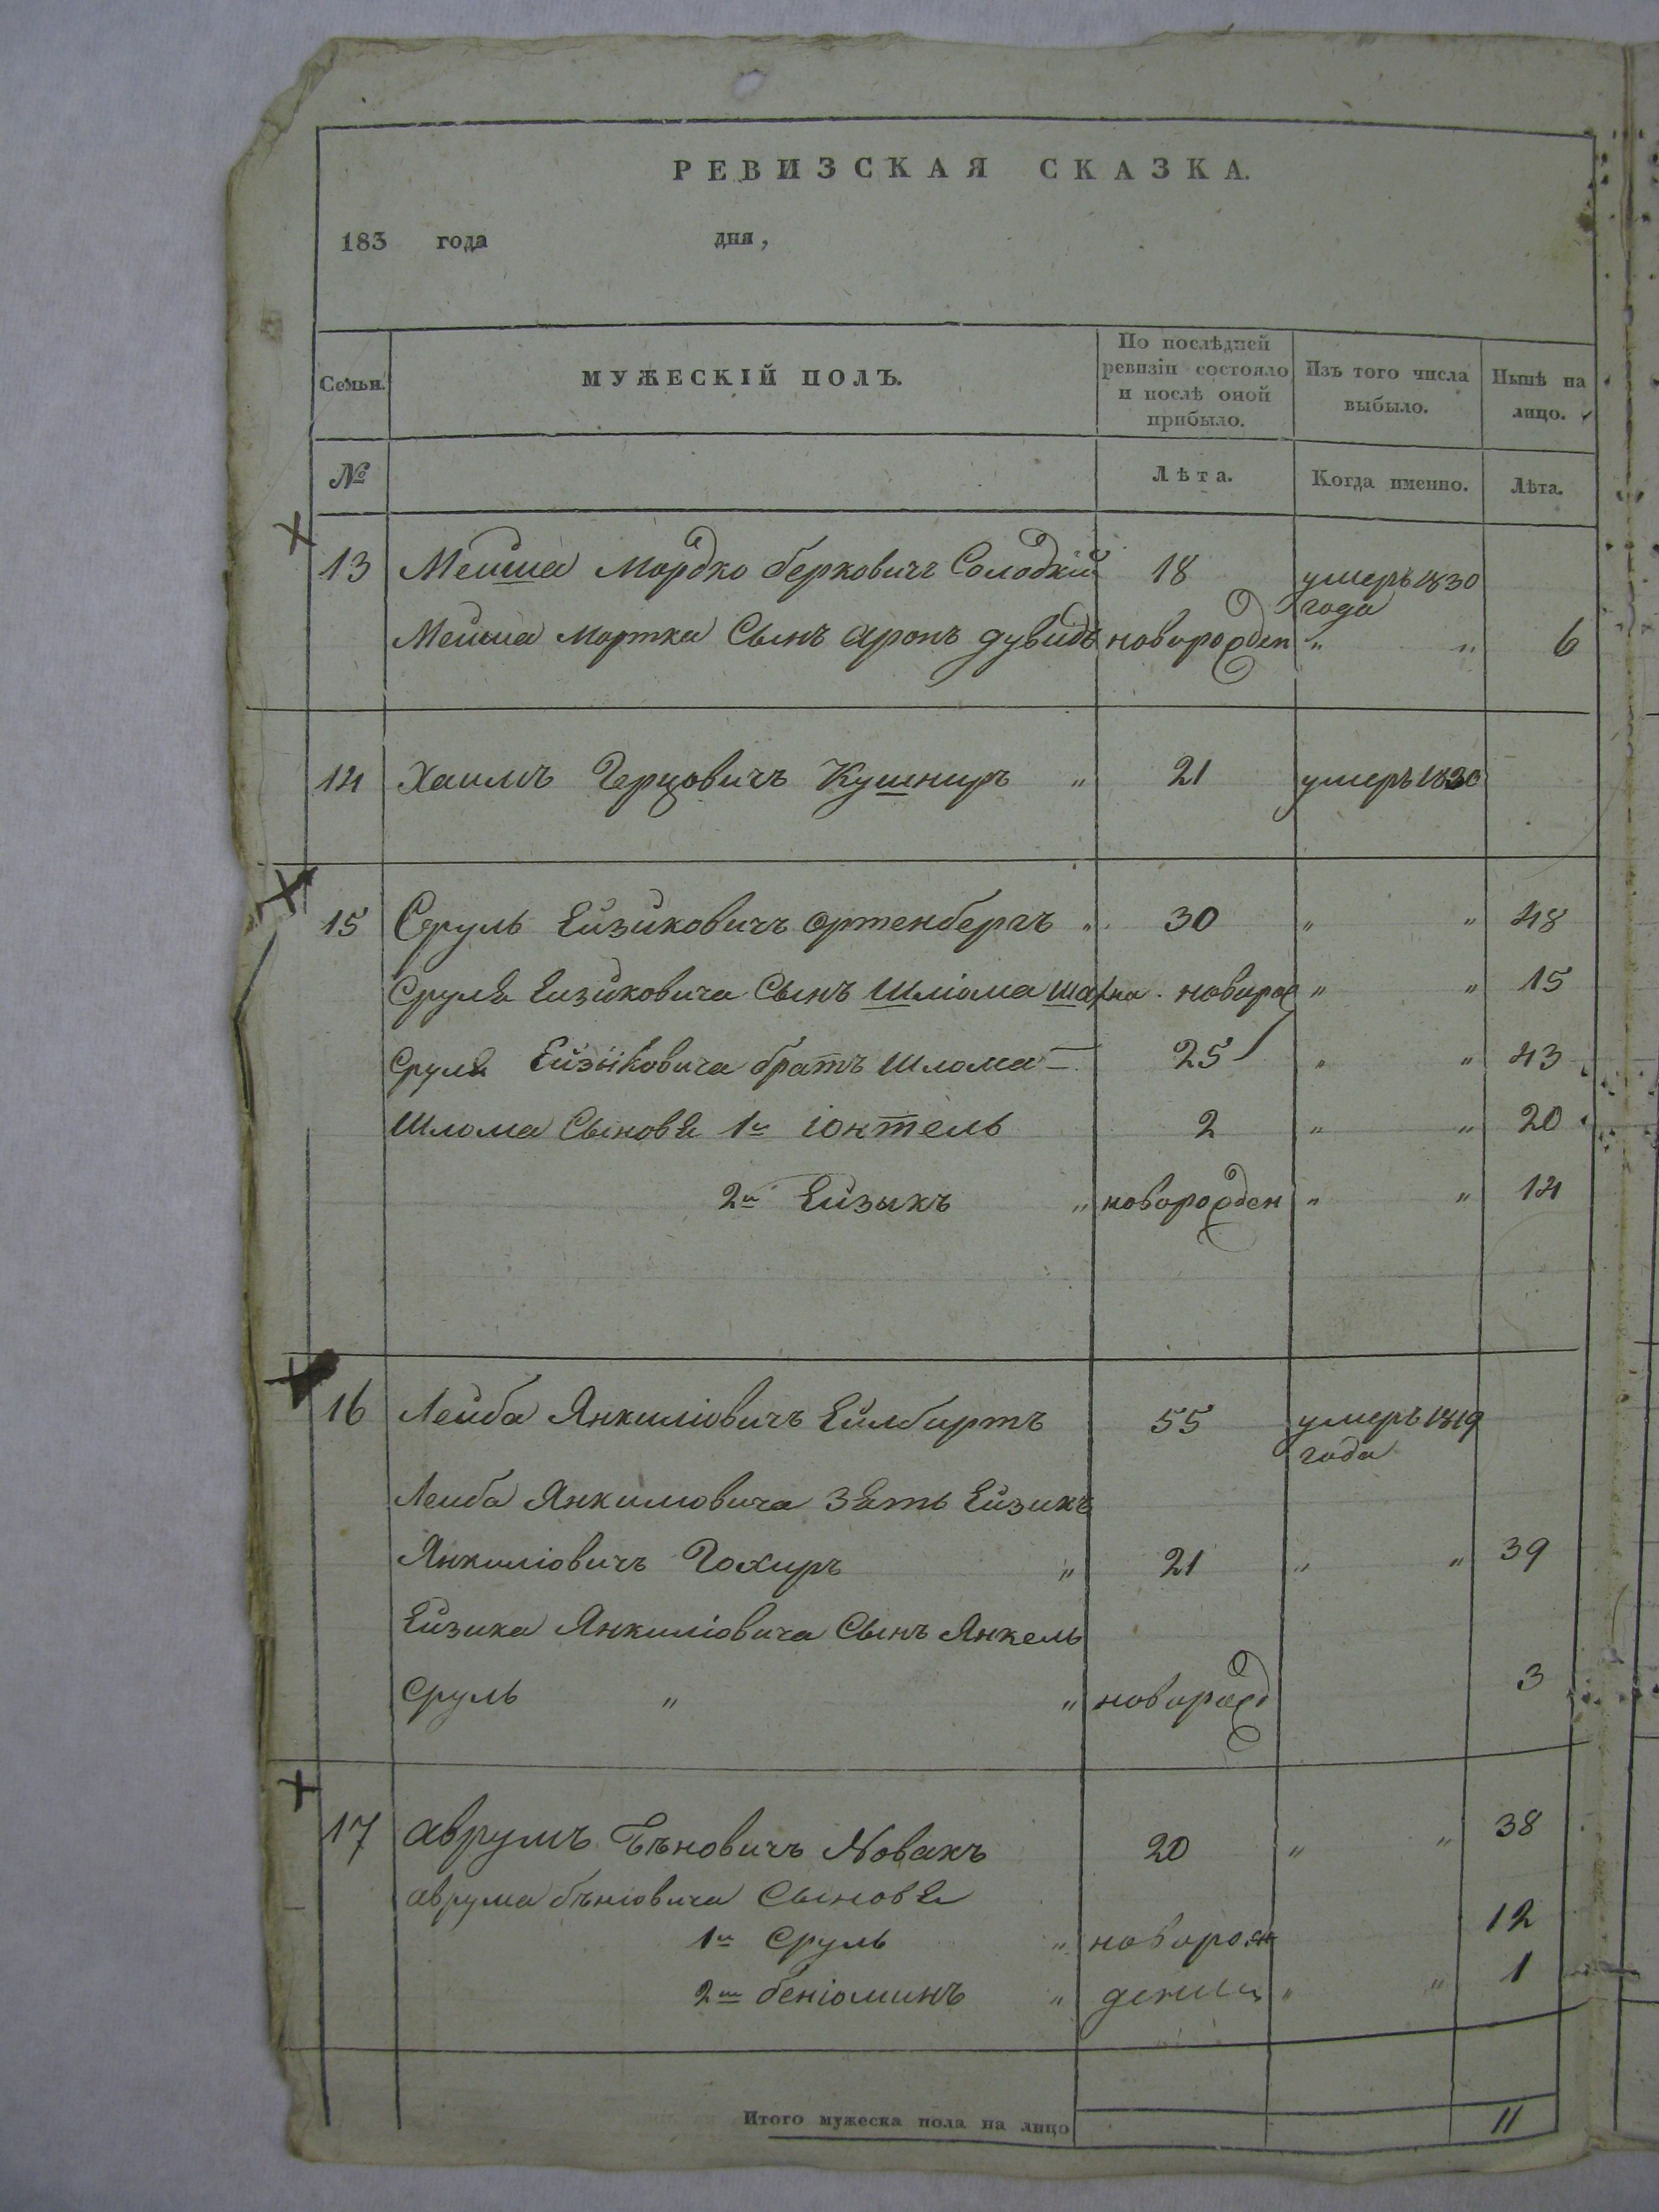 РЕВИЗСКАЯ СКАЗКА.
183 года дня,
Семьи. МУЖЕСКІЙ ПОЛЪ. По послѣдней ревизіи состояло и послѣ оной прибыло. Изъ того числа выбыло. Нынѣ на лицо.
№ Лѣта. Когда именно. Лѣта.
13 Мейша Мордко берковичъ Солодкій 18 умеръ 1830 года
Мейша Мортка Сынъ аронъ дувидъ новорожден " " 6
14 Хаимъ Герцовичъ Кушниръ " 21 умеръ 1830
15 Сруль Ейзиковичъ ортенбергъ " 30 " " 48
Сруля Ейзиковича Сынъ Шліома новорож " " 15
Сруля Ейзиковича братъ Шлома 25 " " 43
Шлома Сыновя 1й іоктель 2 " " 20
2й Ейзыкъ " новорожден " " 14
16 Лейба Янкиліовичъ Ейлбиртъ 55 умеръ 1819 года
Лейба Янкиліовича Зять Ейзикъ
Янкиліовичъ Гохиръ " 21 " " 39
Ейзика Янкиліовича Сынъ Янкель
Сруль " " новорожд 3
17 Аврумъ Бѣновичъ Новакъ 20 " " 38
аврума бѣніовича Сыновя
1й Сруль " новорож 12
2й беніоминъ " денни " " 1
Итого мужеска пола на лицо 11